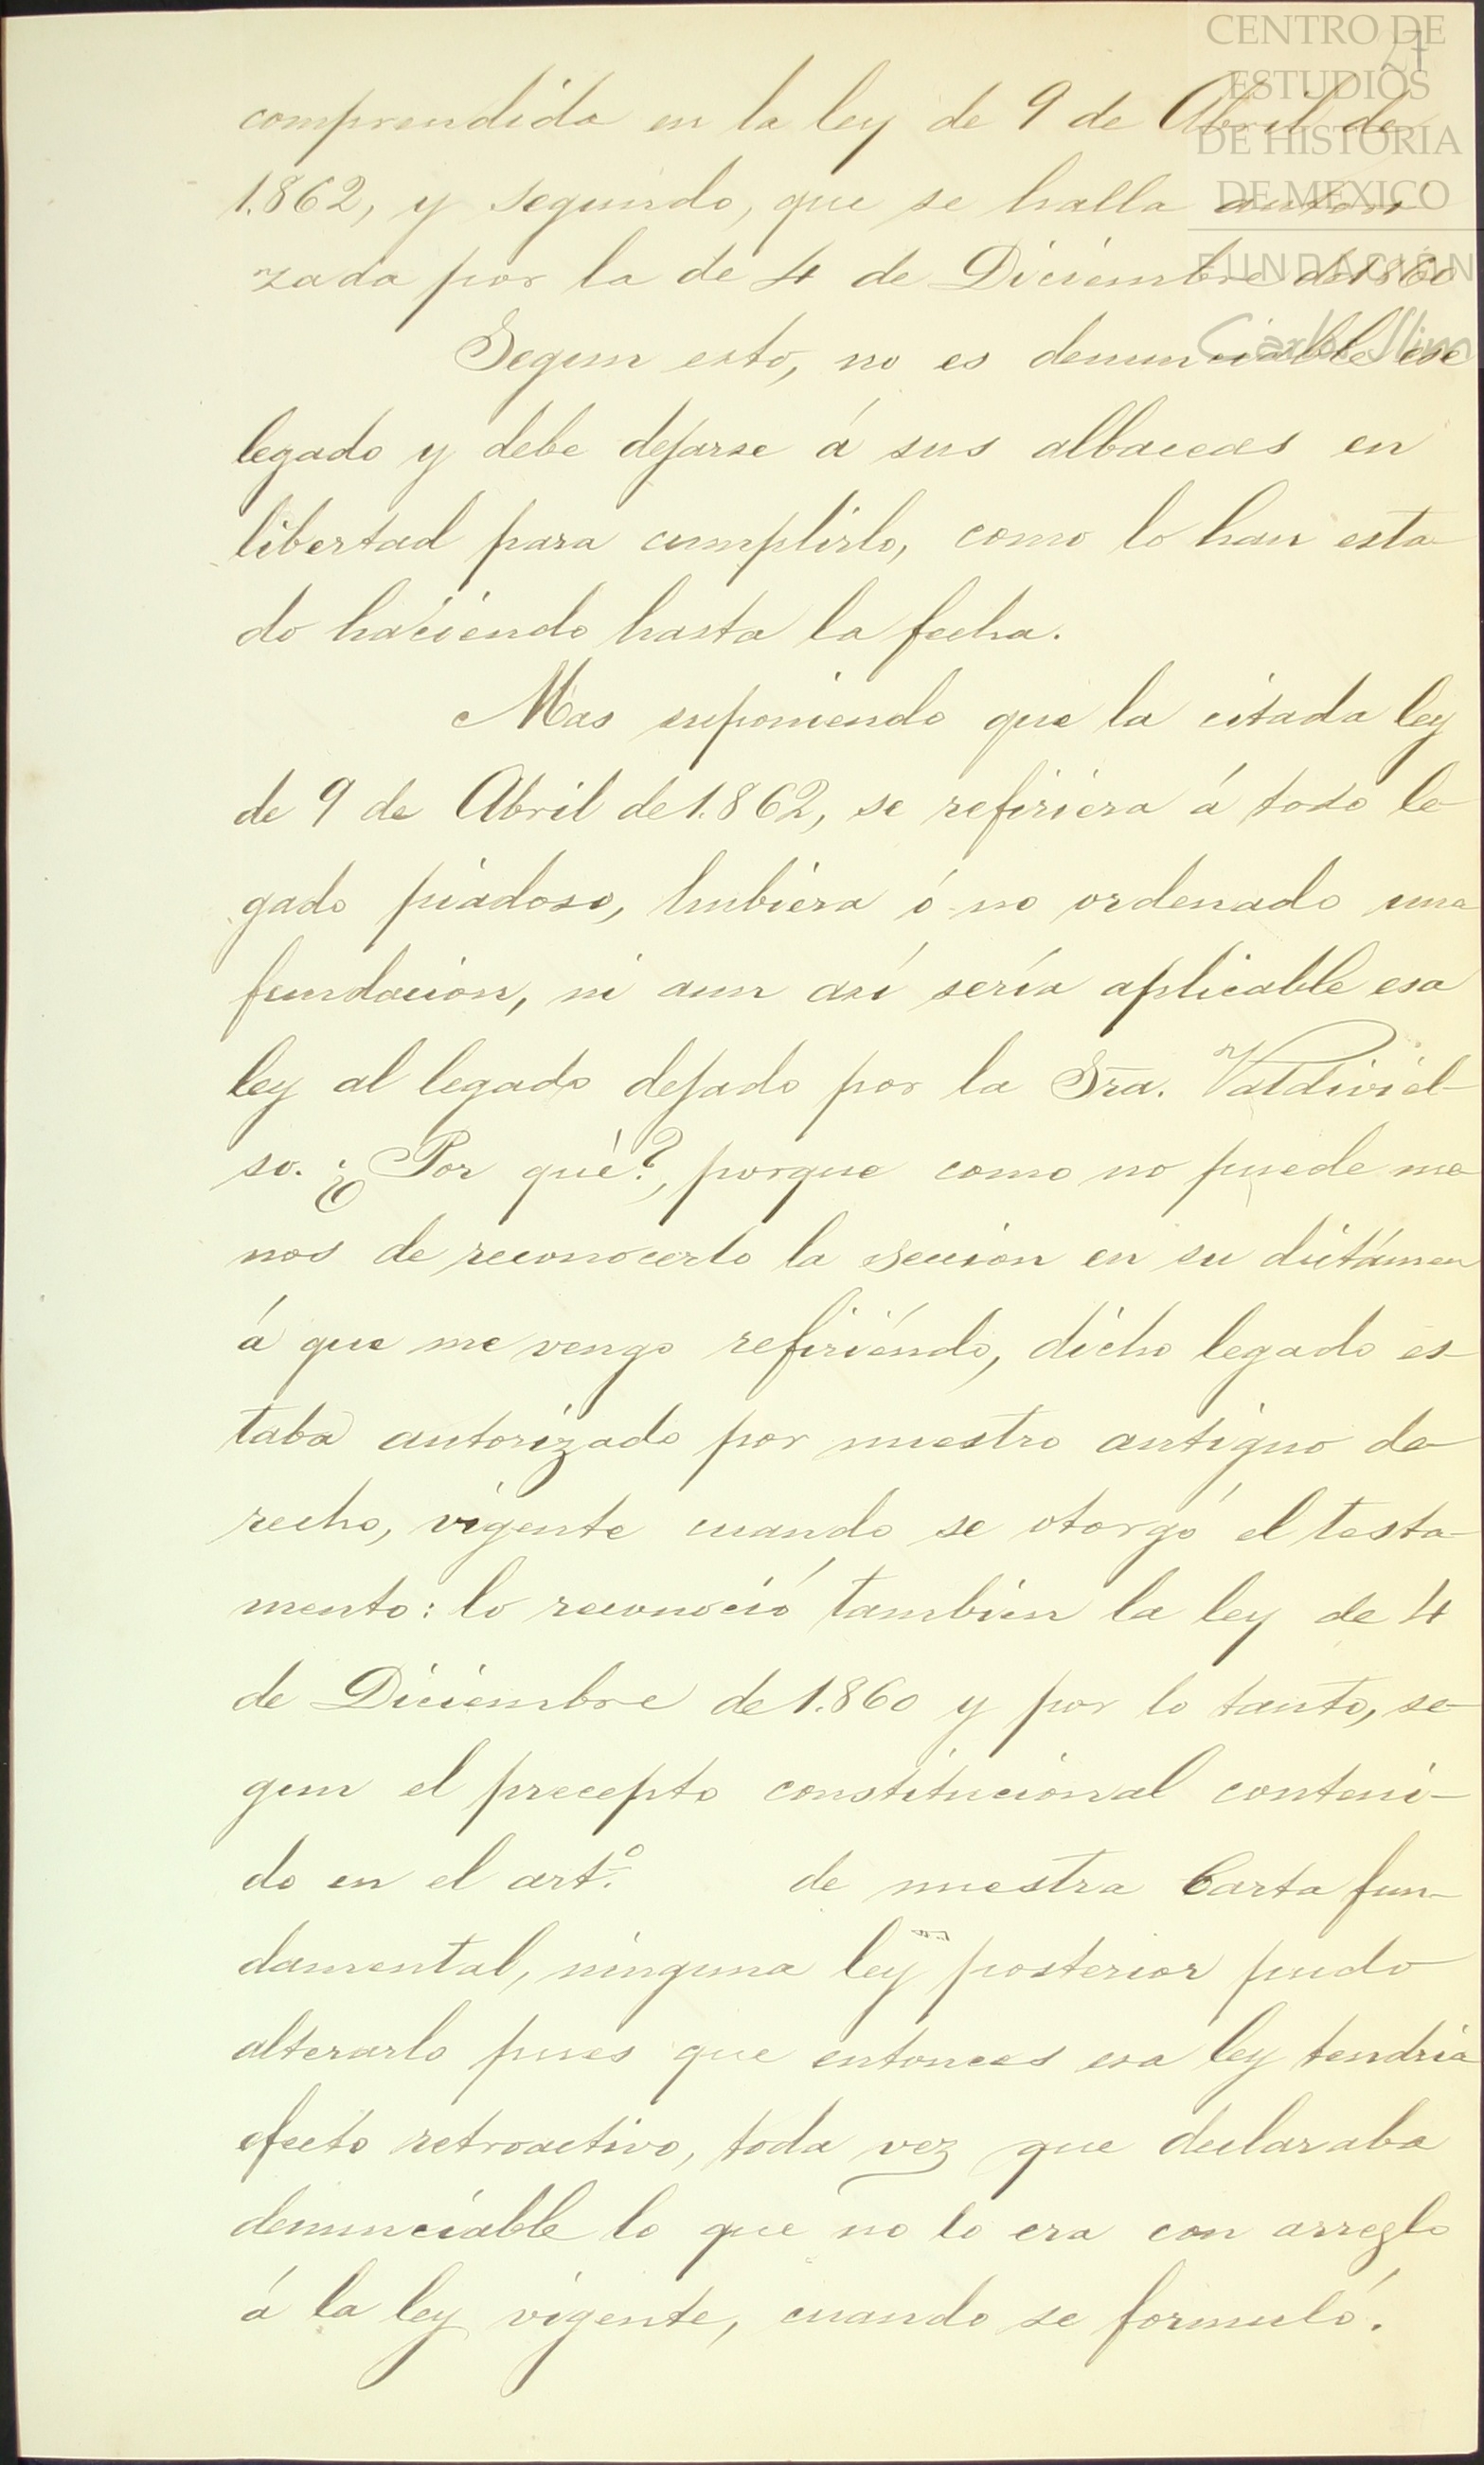 27
CENTRO DE
ESTUDIOS
DE HISTORIA
DE MEXICO
FUNDACIÓN
Carlos Slim
comprendida en la ley de 9 de Abril de
1.862, y segundo, que se halla autori
zada por la de 4 de Diciembre de 1860
Segun esto, no es denunciable ese
legado y debe dejarse á sus albaceas en
libertad para cumplirlo, como lo han esta
do haciendo hasta la fecha.
Mas suponiendo que la citada ley
de 9 de Abril de 1.862, se refiriera á todo le
gado piadoso, hubiera ó no ordenado una
fundacion, ni aun así sería aplicable esa
ley al legado dejado por la Sra. Valdiviel-
so. ¿Por qué?, porque como no puede me
nos de reconocerlo la Seccion en su dictámen
á que me vengo refiriéndo, dicho legado es-
taba autorizado por nuestro antiguo de
recho, vigente cuando se otorgó el testa-
mento: lo reconoció tambien la ley de 4
de Diciembre de 1.860 y por lo tanto, se-
gun el precepto constitucional conteni-
do en el artº. de nuestra Carta fun-
damental, ninguna ley posterior pudo
alterarlo pues que entonces esa ley tendria
efecto retroactivo, toda vez que declaraba
denunciable lo que no lo era con arreglo
á la ley vigente, cuando se formuló.